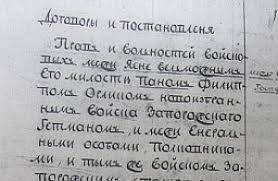 Договоры и постановленя
Правъ и волностей войско
выхъ межи Ясне велможнымъ
Его милости Паномъ Филип
помъ Орликомъ
нымъ войска Запорозского
Гетманомъ, и межи Енерал
ными особами, Полковника
ми, и тымъ же войскомъ За